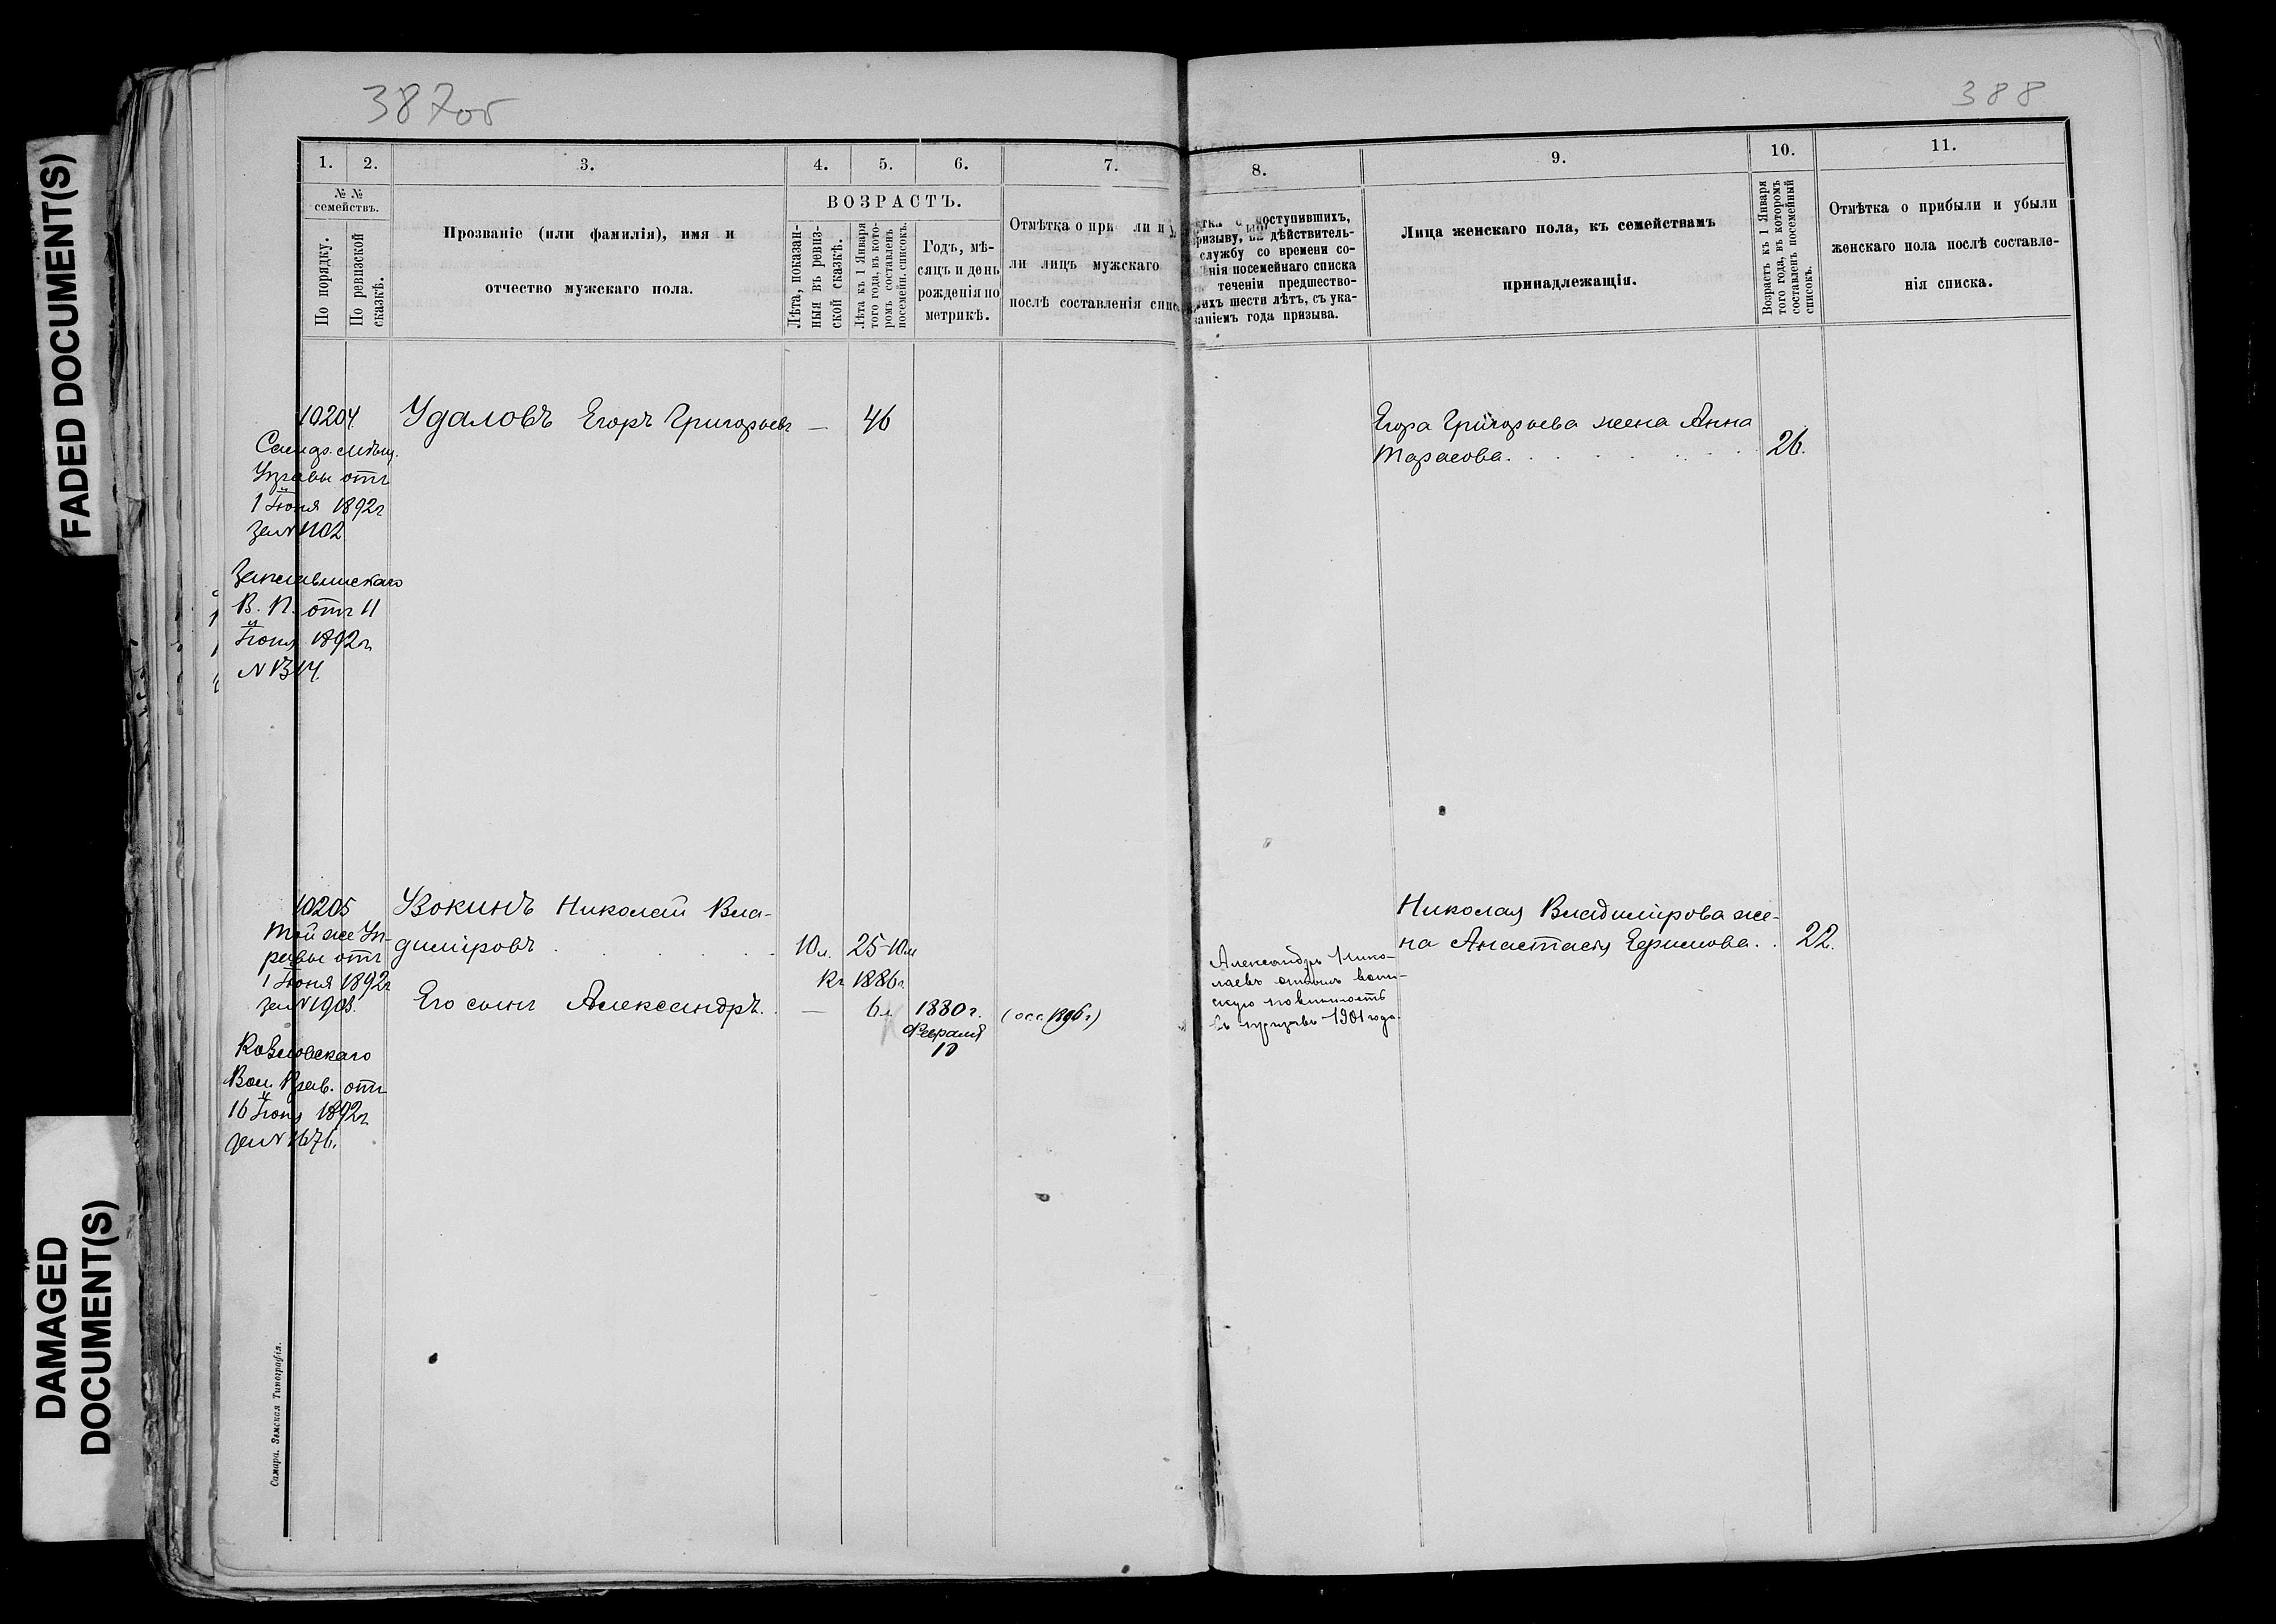 FADED DOCUMENT(S)
DAMAGED
DOCUMENT(S)
387об
1.
2.
3.
4.
5.
6.
7.
№ №
семействъ.
По порядку.
По ревизской
сказкѣ.
Прозваніе (или фамилія), имя и
отчество мужскаго пола.
ВОЗРАСТЪ.
Лѣта, показан-
ныя въ ревиз-
ской сказкѣ.
Лѣта къ 1 Января
того года, въ кото-
ромъ составленъ
посемейн. списокъ.
Годъ, мѣ-
сяцъ и день
рожденія по
метрикѣ.
Отмѣтка о при ли и у
ли лицъ мужскаго
послѣ составленія спис
10204
Самар. мѣщ.
Управы отъ
1 Іюня 1892г
за №1102
Удаловъ Егоръ Григорьевъ — 46
В. П. отъ 11
Іюня 1892г
N 1314.
10205
Той же Уп-
равы отъ
1 Іюня 1892г
за №1908.
Николай Вла-
димiровъ 10л. 25-10м
Кг 1886г.
Его сынъ Александръ. — 6л 1880г.
Февраля
10
Вол. Прав. отъ
16 Іюня 1892г
за №1676.
Самара. Земская Типографія.
388
8.
9.
10.
11.
поступившихъ,
ризыву, дѣйствитель-
службу со времени со-
нія посемейнаго списка
теченіи предшество-
ихъ шести лѣтъ, съ ука-
аніемъ года призыва.
Лица женскаго пола, къ семействамъ
принадлежащія.
Возрастъ къ 1 Января
того года, въ которомъ
составленъ посемейный
списокъ.
Отмѣтка о прибыли и убыли
женскаго пола послѣ составле-
нія списка.
Егора Григорьева жена Анна
Тарасова. 26.
Николая Владимiрова же-
на Анастасiя Ефимова. 22.
Александръ Нико-
лаевъ отбылъ воин-
скую повинность
въ призывъ 1901 года.